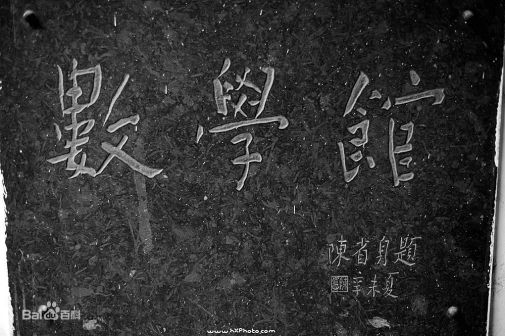 數學館
陳省身題
辛未夏
Bai百科
www.hxPhoto.com